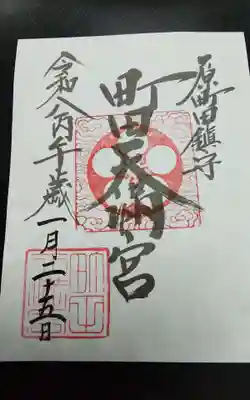 原町田鎮守
町田天満宮
令和八丙午歳
一月二十五日